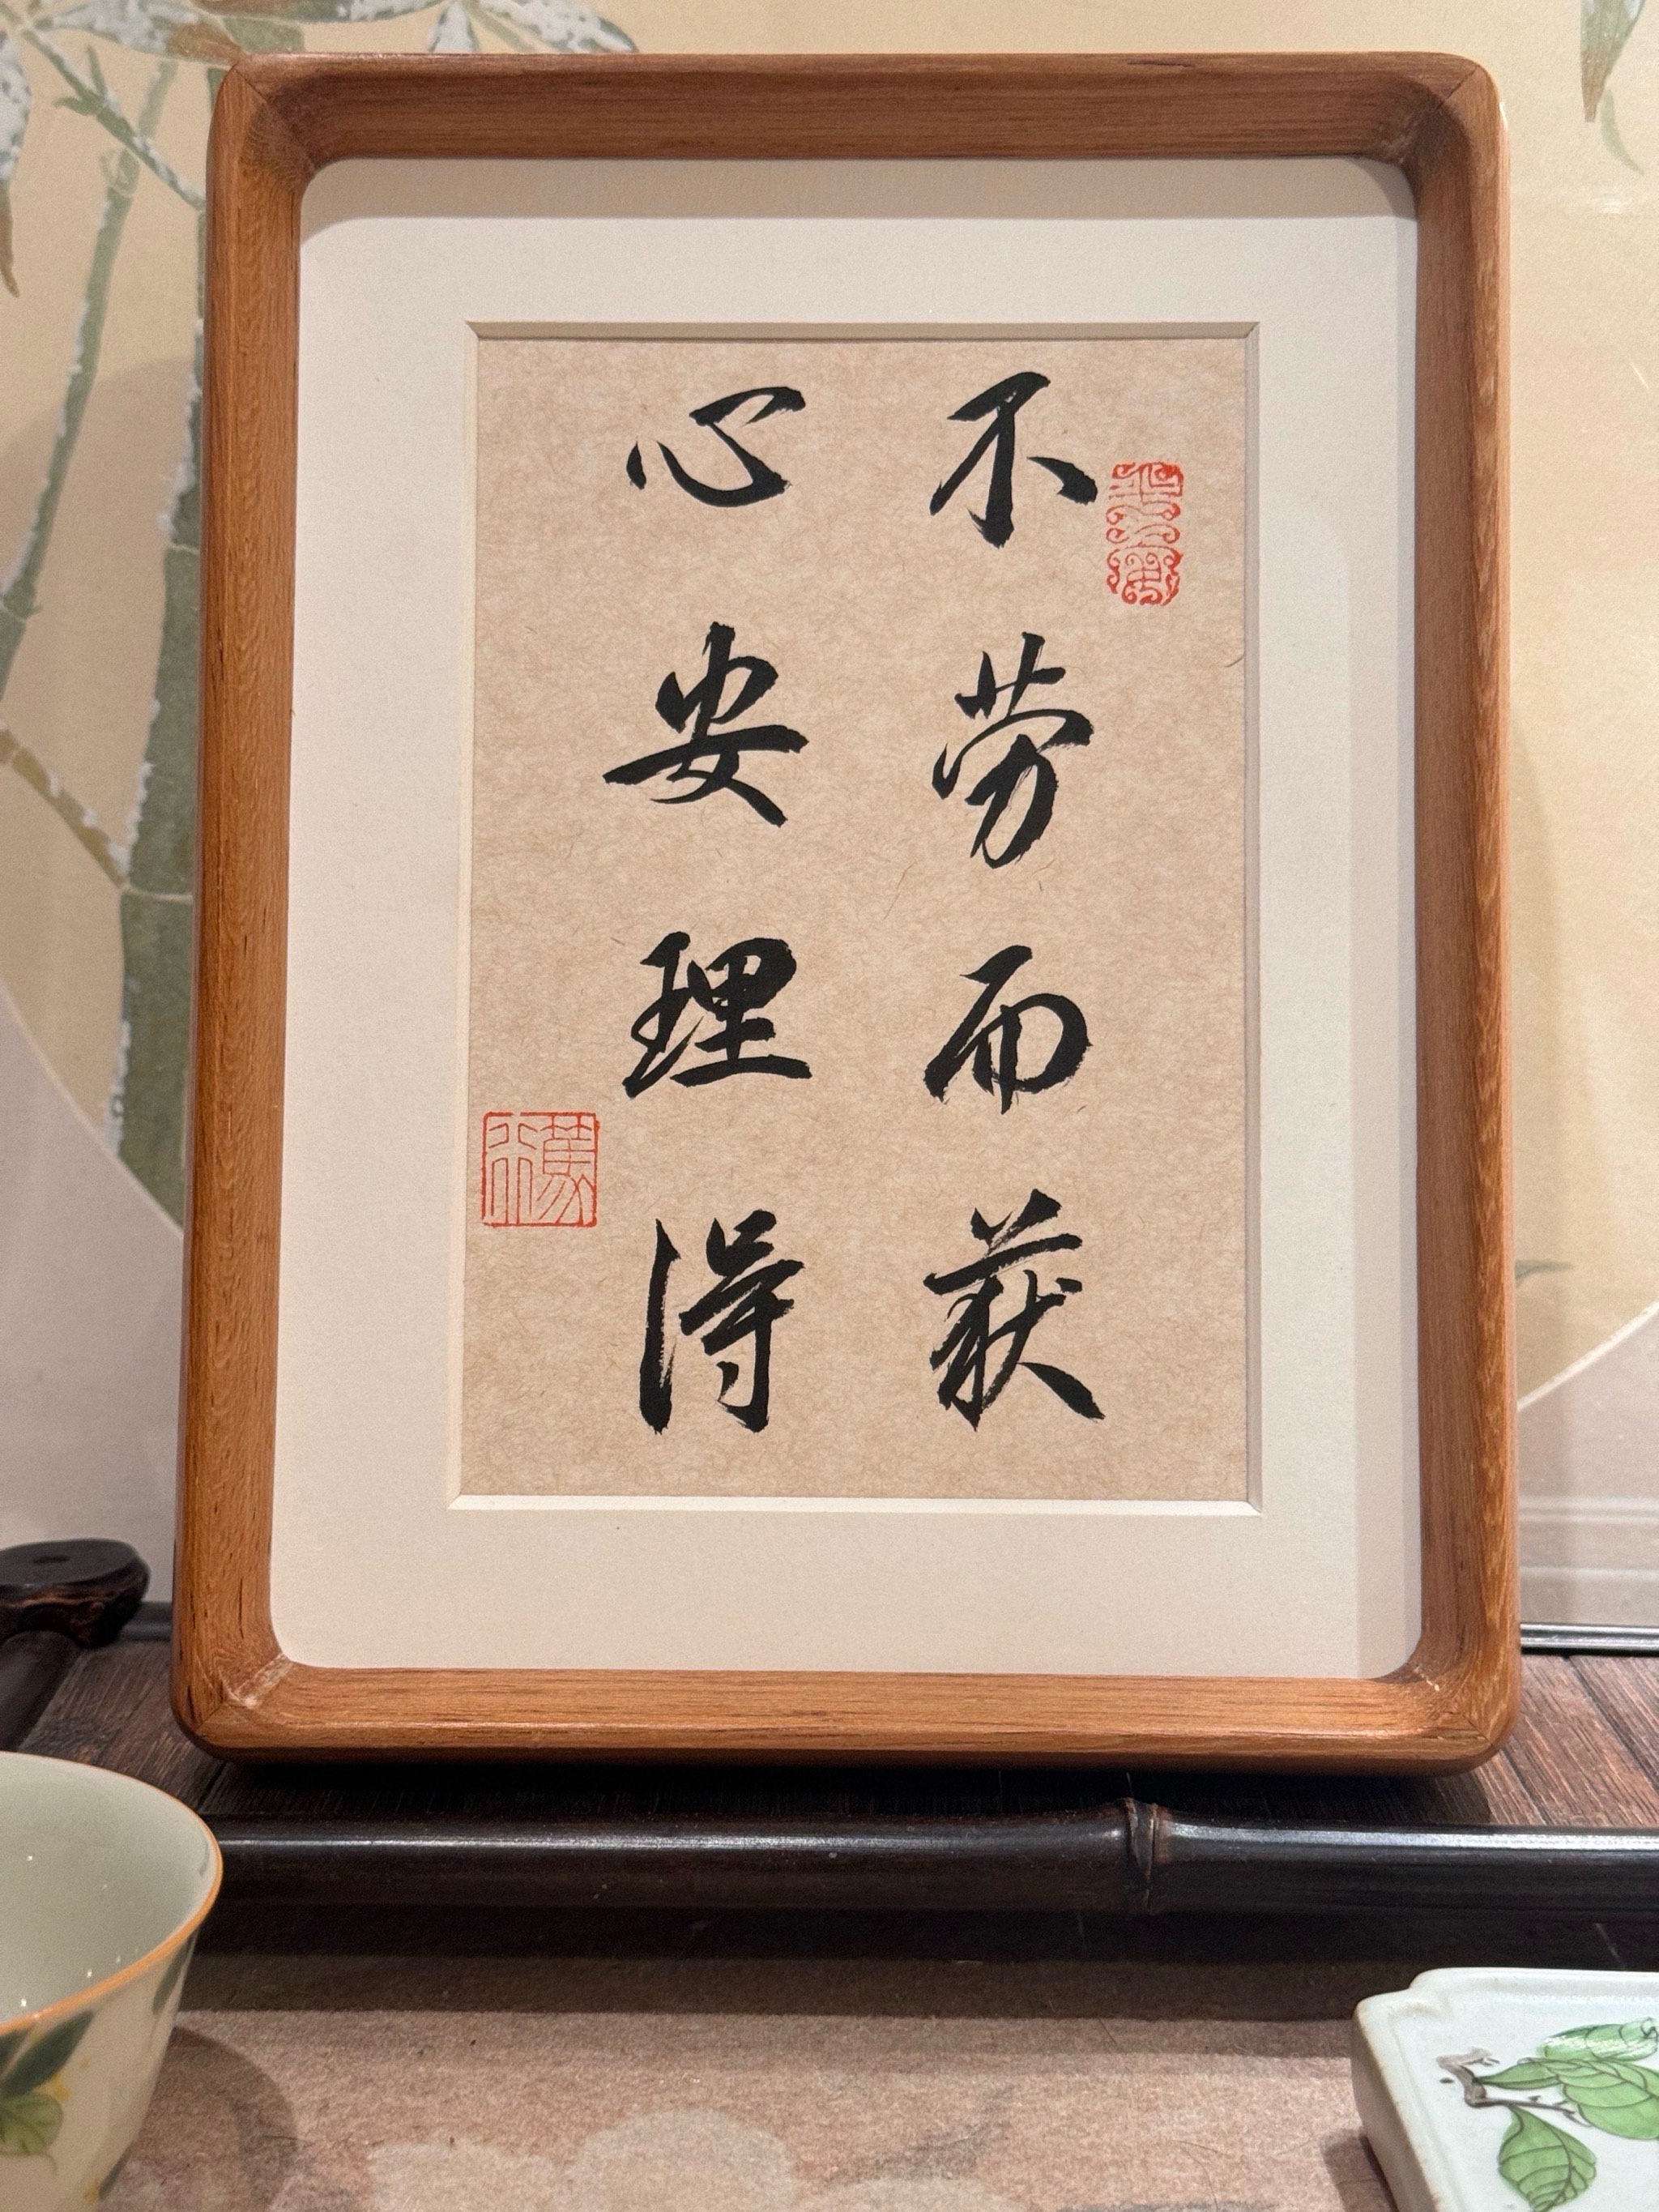 不劳而获
心安理得